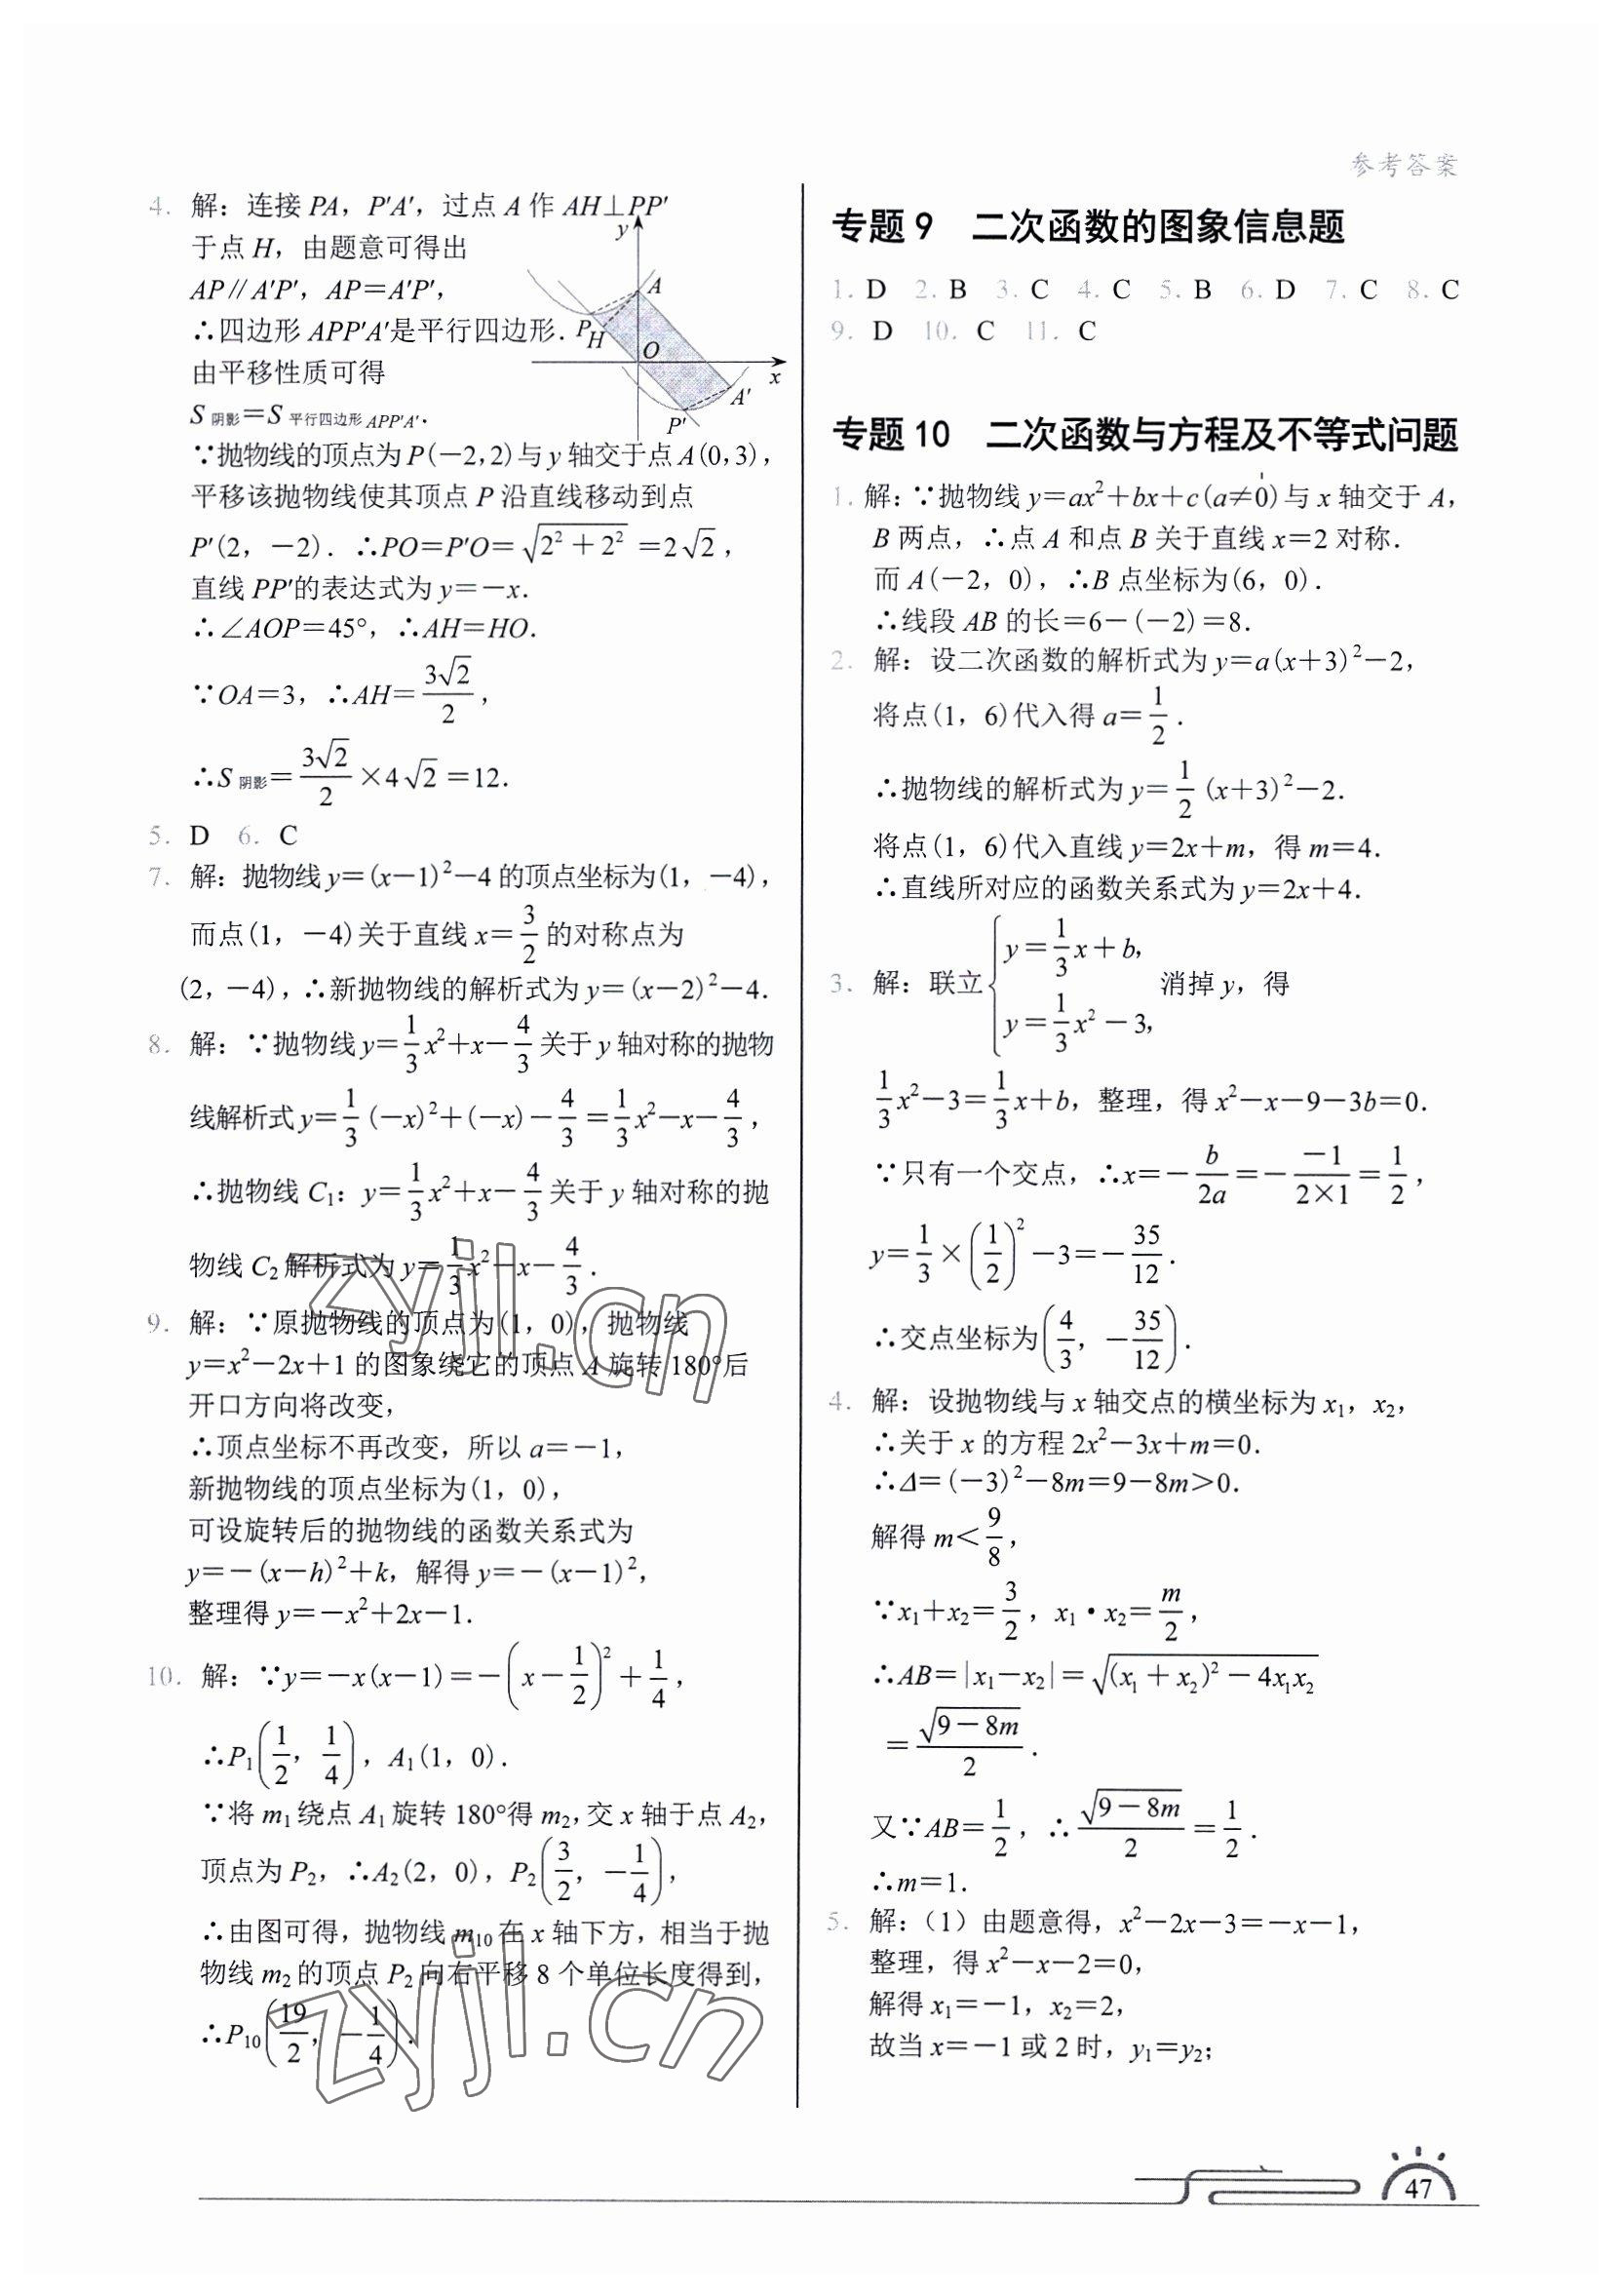 参考答案
4. 解：连接 PA，P′A′，过点 A 作 AH⊥PP′
于点 H，由题意可得出
AP∥A′P′，AP=A′P′，
∴四边形 APP′A′是平行四边形．
由平移性质可得
S阴影=S平行四边形APP′A′．
y
A
P
H
O
x
A′
P′
∵抛物线的顶点为 P(−2,2)与 y 轴交于点 A(0,3)，
平移该抛物线使其顶点 P 沿直线移动到点
P′(2，−2)．∴PO=P′O=√(2²+2²)=2√2，
直线 PP′的表达式为 y=−x.
∴∠AOP=45°，∴AH=HO.
∵OA=3，∴AH=3√2/2，
∴S阴影=3√2/2×4√2=12.
5. D 6. C
7. 解：抛物线 y=(x−1)²−4 的顶点坐标为(1，−4)，
而点(1，−4)关于直线 x=3/2 的对称点为
(2，−4)，∴新抛物线的解析式为 y=(x−2)²−4.
8. 解：∵抛物线 y=1/3x²+x−4/3 关于 y 轴对称的抛物
线解析式 y=1/3(−x)²+(−x)−4/3=1/3x²−x−4/3，
∴抛物线 C₁：y=1/3x²+x−4/3 关于 y 轴对称的抛
物线 C₂ 解析式为 y=1/3x²−x−4/3.
9. 解：∵原抛物线的顶点为(1，0)，抛物线
y=x²−2x+1 的图象绕它的顶点 A 旋转 180°后
开口方向将改变，
∴顶点坐标不再改变，所以 a=−1，
新抛物线的顶点坐标为(1，0)，
可设旋转后的抛物线的函数关系式为
y=−(x−h)²+k，解得 y=−(x−1)²，
整理得 y=−x²+2x−1.
10. 解：∵y=−x(x−1)=−(x−1/2)²+1/4，
∴P₁(1/2，1/4)，A₁(1，0)．
∵将 m₁ 绕点 A₁ 旋转 180°得 m₂，交 x 轴于点 A₂，
顶点为 P₂，∴A₂(2，0)，P₂(3/2，−1/4)，
∴由图可得，抛物线 m₁₀ 在 x 轴下方，相当于抛
物线 m₂ 的顶点 P₂ 向右平移 8 个单位长度得到，
∴P₁₀(19/2，−1/4)．
专题 9 二次函数的图象信息题
1. D 2. B 3. C 4. C 5. B 6. D 7. C 8. C
9. D 10. C 11. C
专题 10 二次函数与方程及不等式问题
1. 解：∵抛物线 y=ax²+bx+c(a≠0)与 x 轴交于 A，
B 两点，∴点 A 和点 B 关于直线 x=2 对称.
而 A(−2，0)，∴B 点坐标为(6，0)．
∴线段 AB 的长=6−(−2)=8.
2. 解：设二次函数的解析式为 y=a(x+3)²−2，
将点(1，6)代入得 a=1/2.
∴抛物线的解析式为 y=1/2(x+3)²−2.
将点(1，6)代入直线 y=2x+m，得 m=4.
∴直线所对应的函数关系式为 y=2x+4.
3. 解：联立{y=1/3x+b, y=1/3x²−3, 消掉 y，得
1/3x²−3=1/3x+b，整理，得 x²−x−9−3b=0.
∵只有一个交点，∴x=−b/2a=−(−1)/(2×1)=1/2，
y=1/3×(1/2)²−3=−35/12.
∴交点坐标为(4/3，−35/12)．
4. 解：设抛物线与 x 轴交点的横坐标为 x₁，x₂，
∴关于 x 的方程 2x²−3x+m=0.
∴Δ=(−3)²−8m=9−8m>0.
解得 m<9/8，
∵x₁+x₂=3/2，x₁•x₂=m/2，
∴AB=|x₁−x₂|=√((x₁+x₂)²−4x₁x₂)
=√(9−8m)/2.
又∵AB=1/2，∴√(9−8m)/2=1/2.
∴m=1.
5. 解：(1) 由题意得，x²−2x−3=−x−1，
整理，得 x²−x−2=0，
解得 x₁=−1，x₂=2，
故当 x=−1 或 2 时，y₁=y₂；
zyjl.cn
zyjl.cn
47